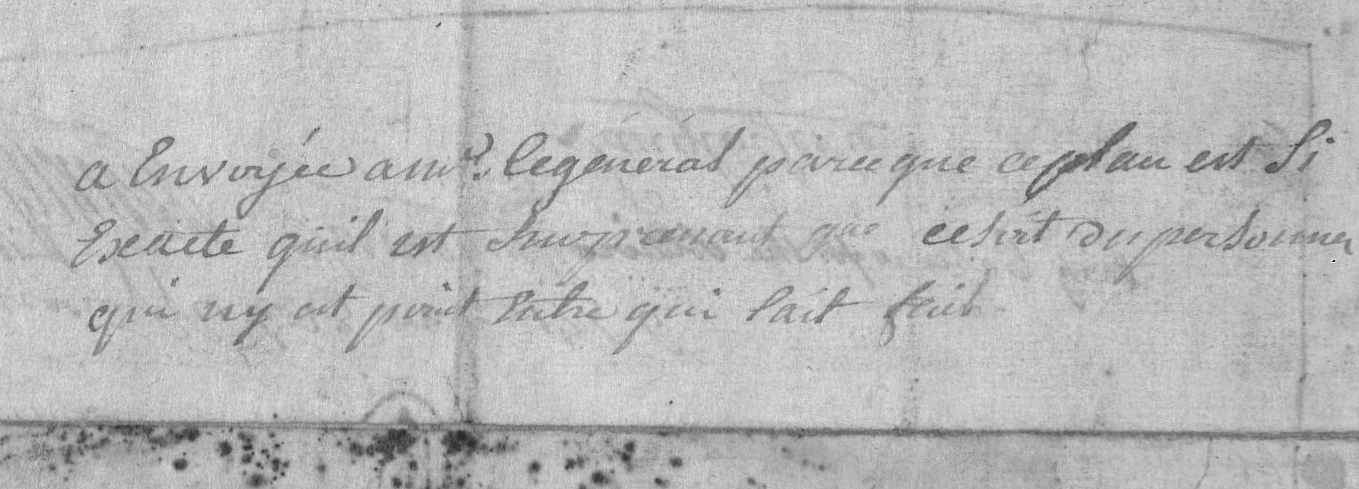 a Envoyée a mr. le général parce que ce plan est Si
Exacte qu'il est Surprenant que cesoit du personnes
qui ny est point Entre qui lait fait